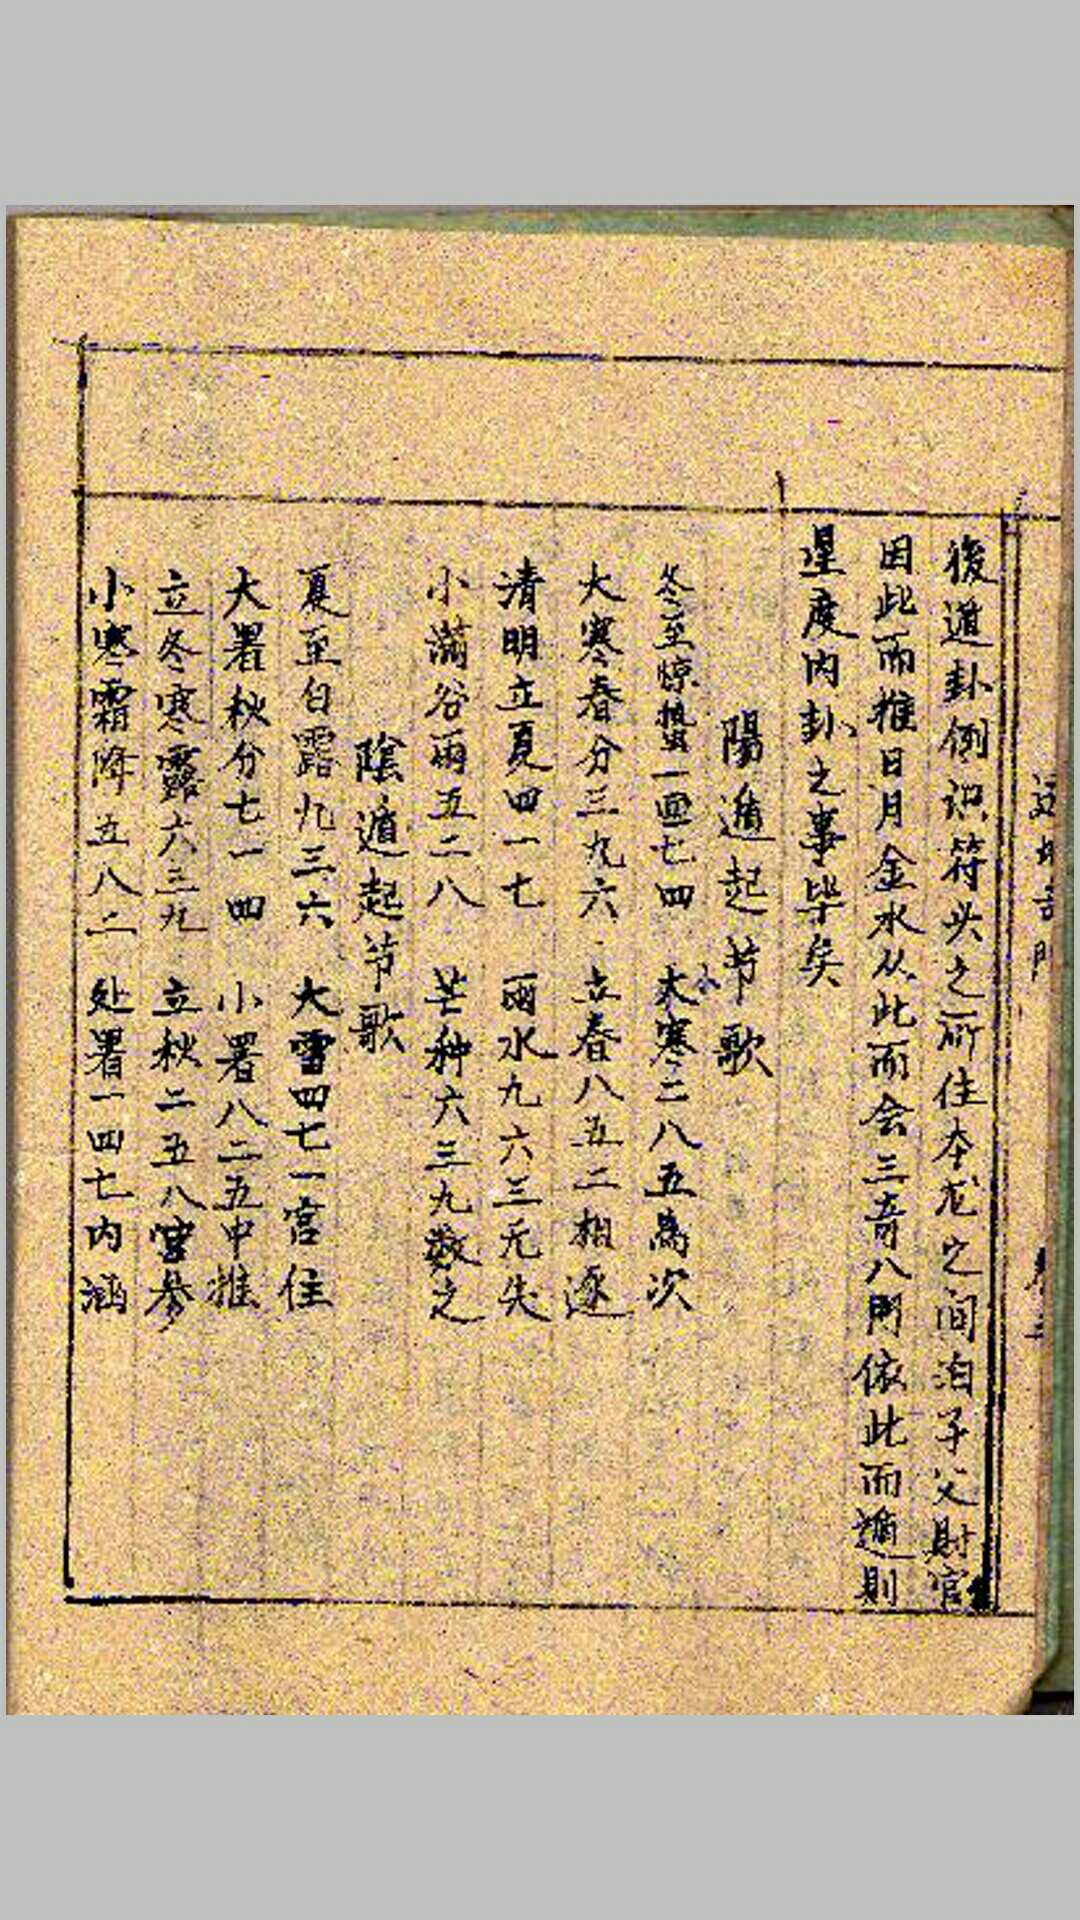 後遁卦例识符头之所住本龙之间泊子父財官
因此而推日月金水从此而会三奇八門依此而遁則
星度内卦之事毕矣
陽遁起节歌
冬至惊蟄一〇七四 大小寒二八五為次
大寒春分三九六 立春八五二相逐
清明立夏四一七 雨水九六三无失
小满谷雨五二八 芒种六三九数之
陰遁起节歌
夏至白露九三六 大雪四七一宫住
大署秋分七一四 小署八二五中推
立冬寒露六三九 立秋二五八宫参
小寒霜降五八二 处署一四七内涵